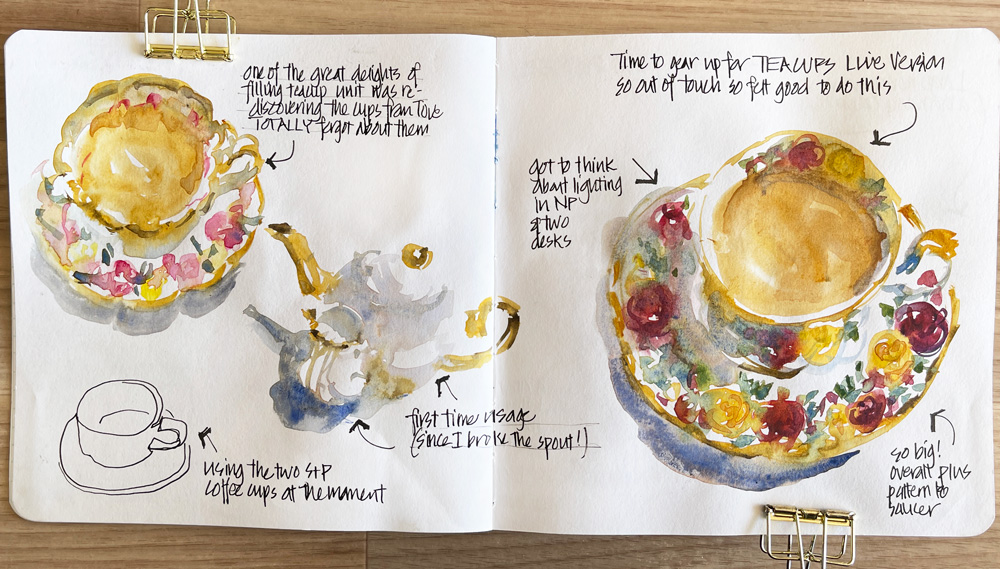 one of the great delights of
filling teacup unit was re-
discovering the cups from Tove
TOTALLY forgot about them
first time usage
(since I broke the spout!)
using the two STP
coffee cups at the moment
Time to gear up for TEACUPS Live Version
so out of touch so felt good to do this
got to think
about lighting
in NP
& two
desks
so big!
overall plus
pattern to
saucer